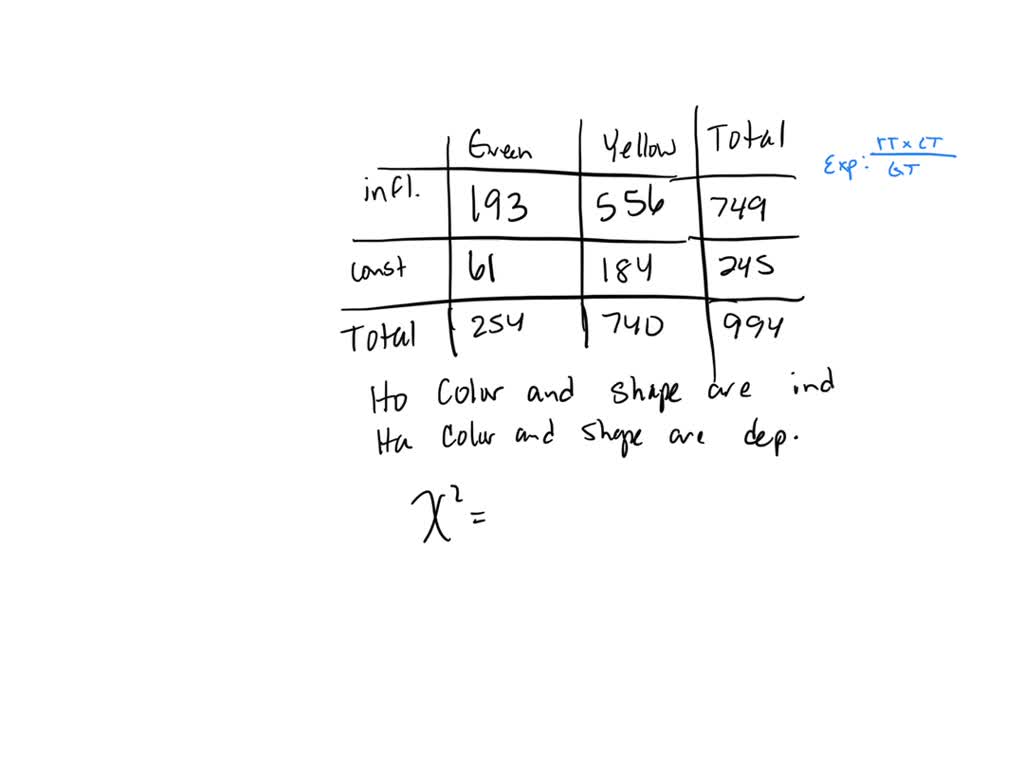 Green Yellow Total
Exp: rT × CT / GT
infl. 193 556 749
const 61 184 245
Total 254 740 994
Ho Color and shape are ind
Ha Color and shape are dep.
χ² =